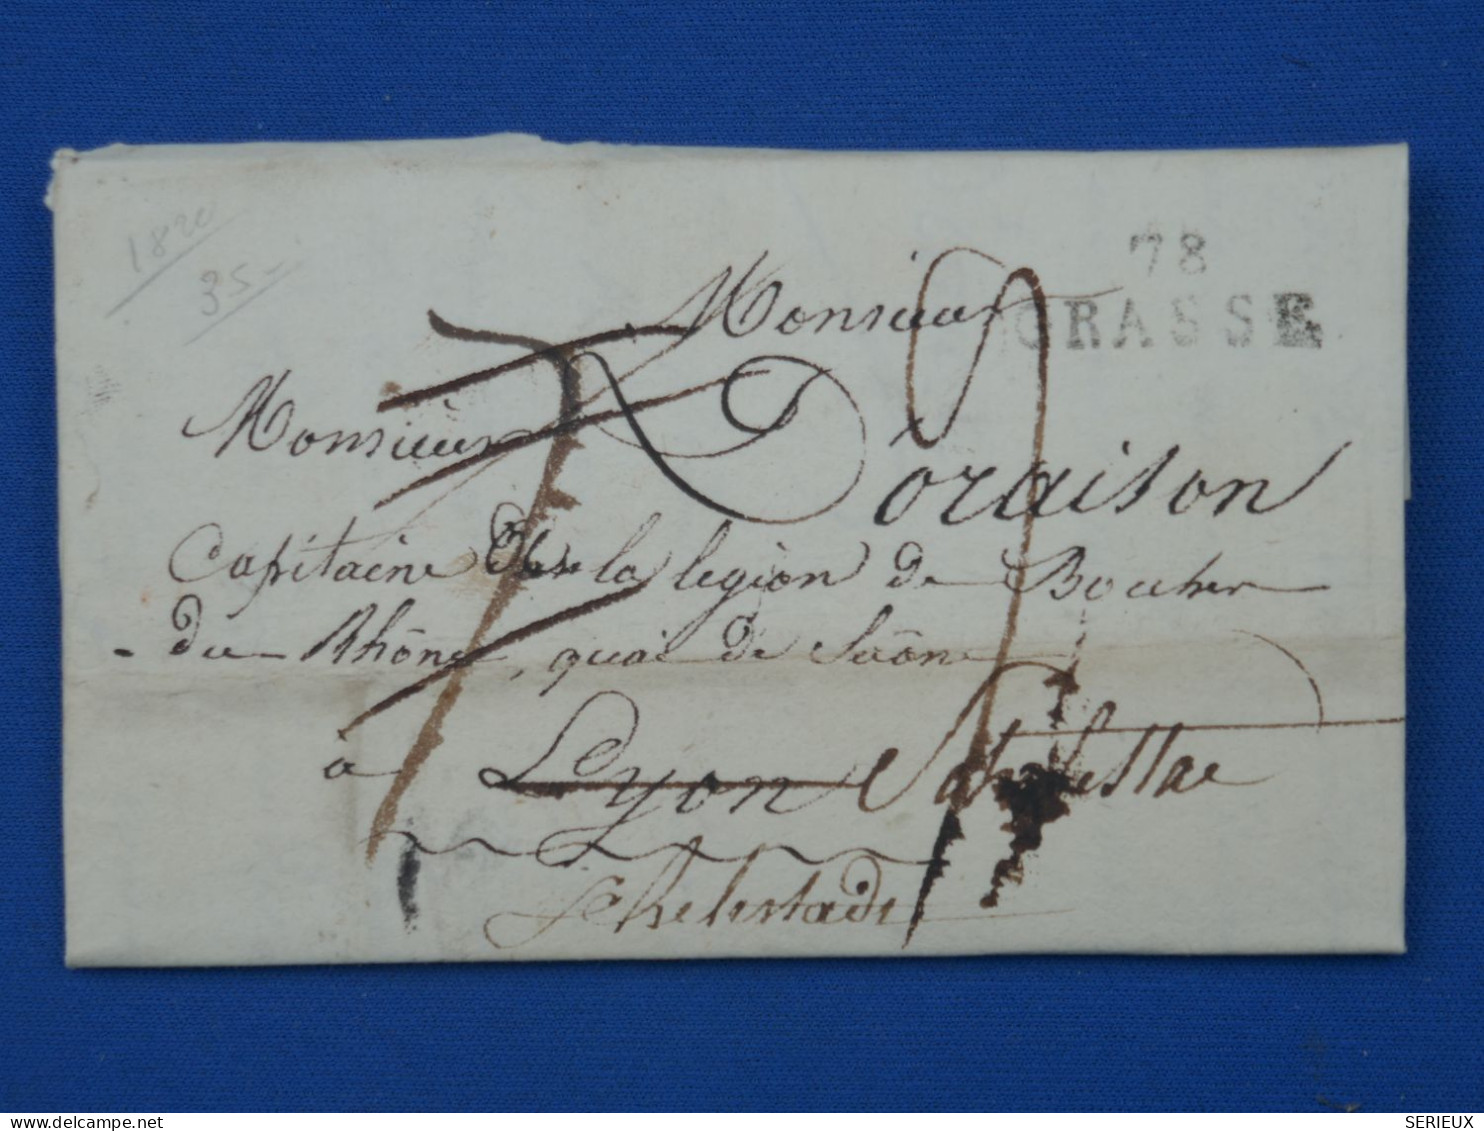 1820
35-
78
GRASSE
Monsieur
Monsieur Doraison
Capitaine de la legion de Bouches
du Rhône, quai de Saône
à Lyon
Schelestadt
SERIEUX
delcampe.net